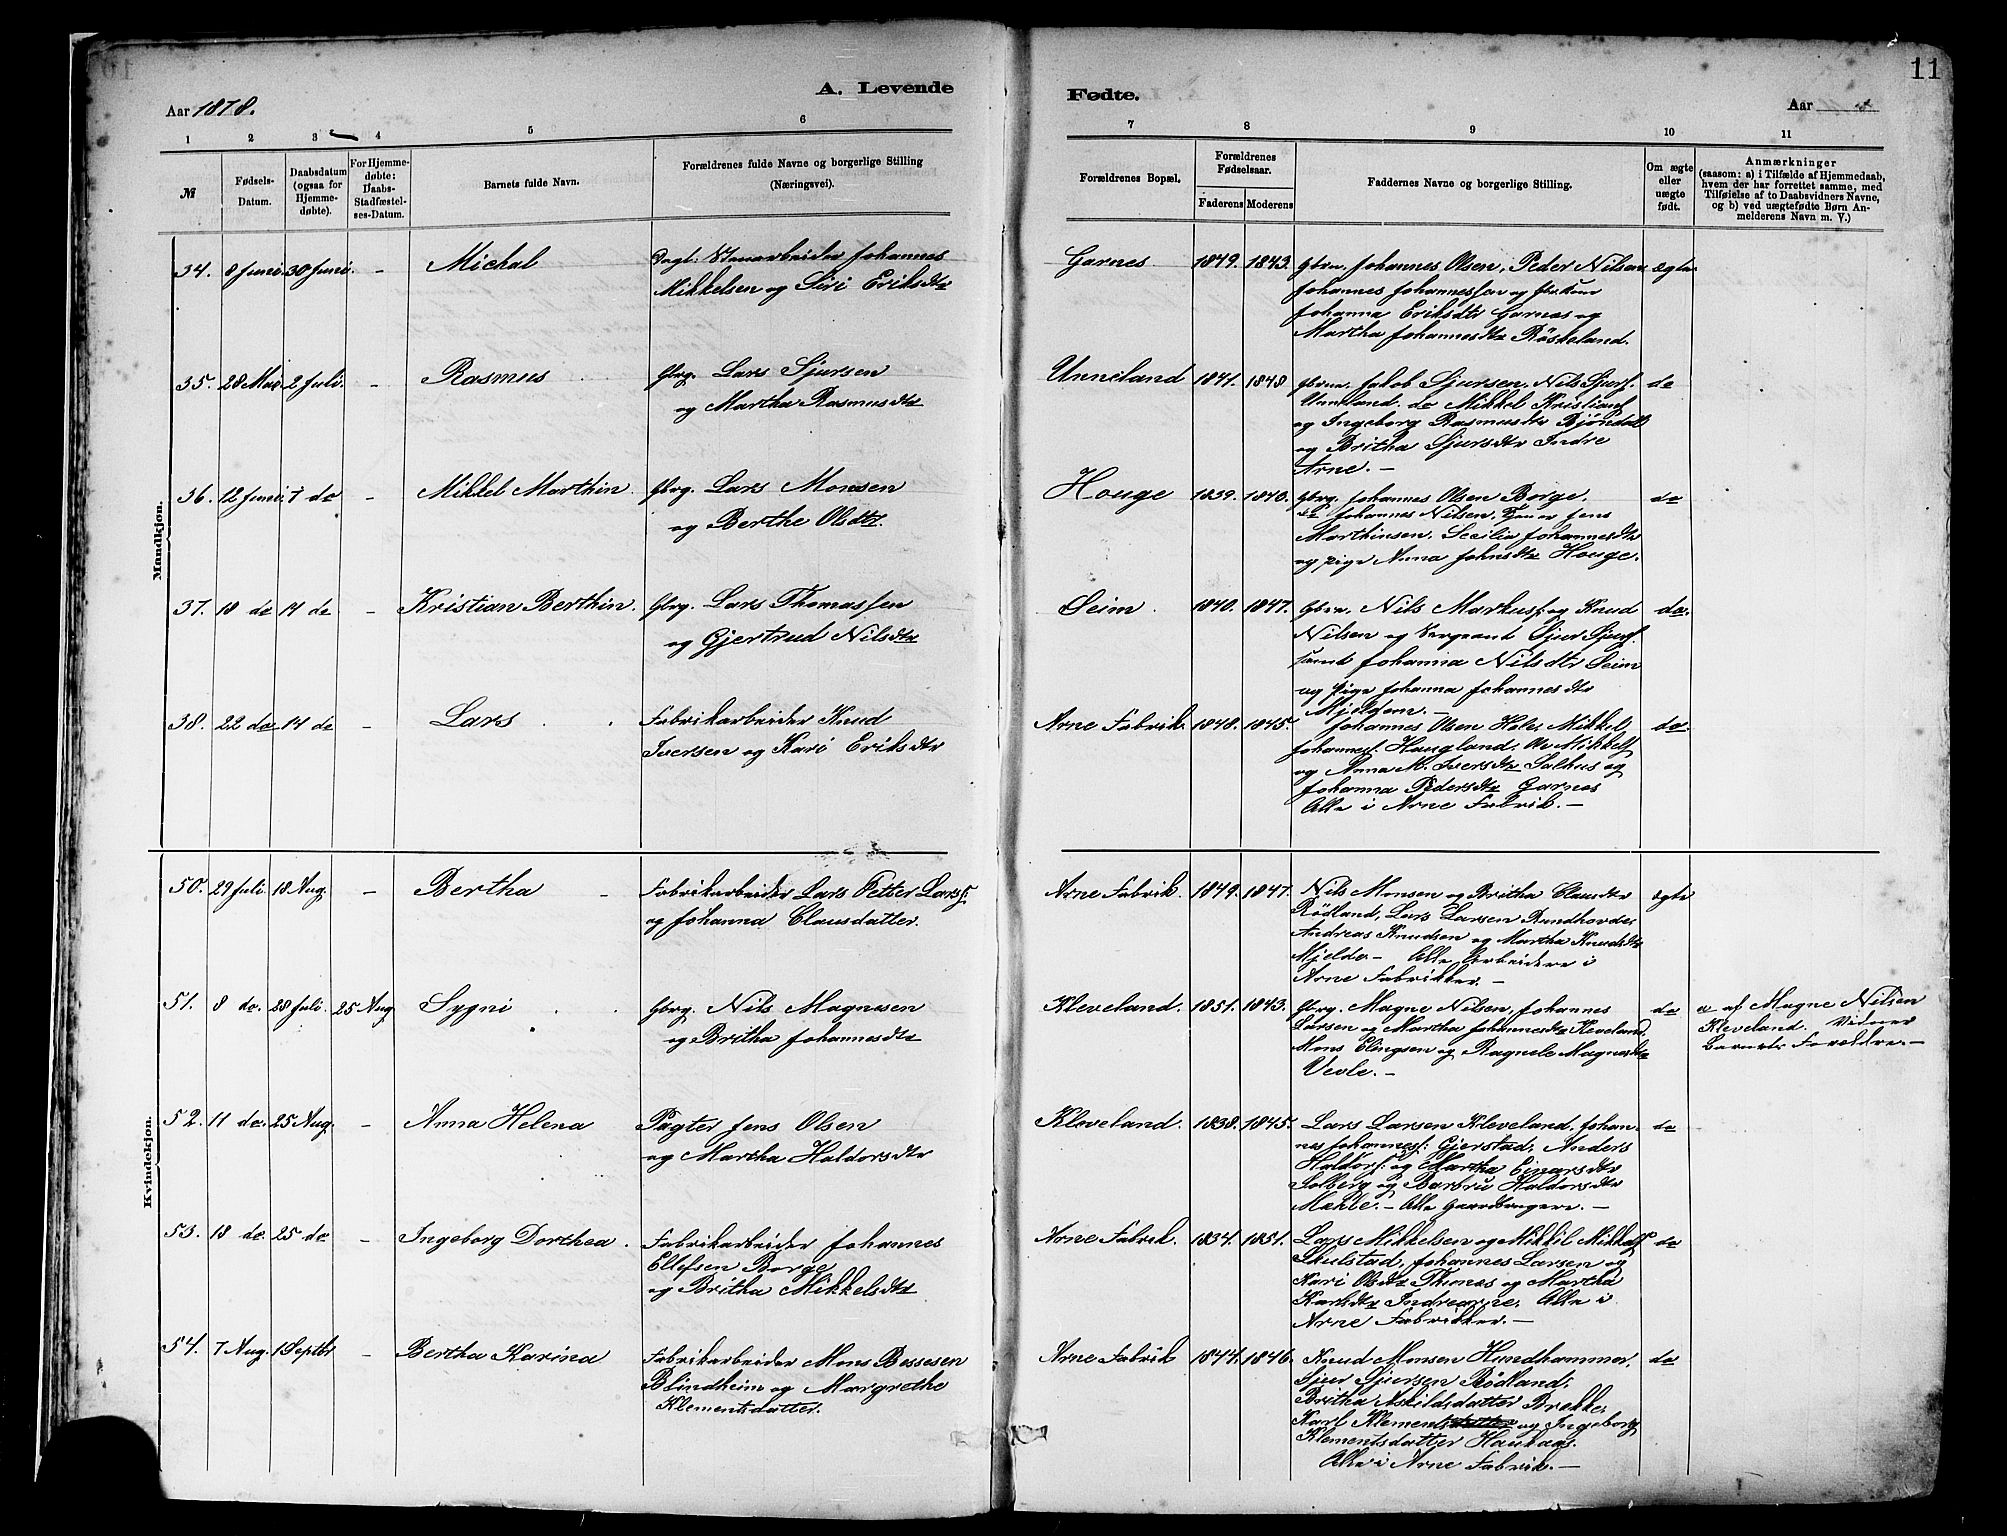 11
A. Levende
Fødte.
Aar 1878.
Aar
1 2 3 4 5 6
7 8 9 10 11
№
Fødsels-
Datum.
Daabsdatum
(ogsaa for
Hjemme-
døbte).
For Hjemme-
døbte:
Daabs-
Stadfæstel-
ses-Datum.
Barnets fulde Navn.
Forældrenes fulde Navne og borgerlige Stilling
(Næringsvei).
Forældrenes Bopæl.
Forældrenes
Fødselsaar.
Faderens Moderens
Faddernes Navne og borgerlige Stilling.
Om ægte
eller
uægte
født.
Anmærkninger
(saasom: a) i Tilfælde af Hjemmedaab,
hvem der har forrettet samme, med
Tilføielse af to Daabsvidners Navne,
og b) ved uægtefødte Børn An-
melderens Navn m. V.)
Mandkjøn.
34. 8 Juni. 30 Juni. - Michal
Stenarbeider Johannes
Mikkelsen og Siri Eriksdtr
Garnes 1849. 1843.
Gbrn. Johannes Olsen, Peder Nilsen
Johannes Johannessen og
Johanna Eriksdtr Garnes og
Martha Johannesdtr Röskeland.
ægte
35. 28 Mai. 2 Juli. - Rasmus
Gbrg. Lars Sjursen
og Martha Rasmusdtr
Unneland 1841. 1848
Gbrn. Jakob Sjursen, Nils Sjurs.
Unneland. do Mikkel Kristians
og Ingeborg Rasmusdtr Bjöndal
og Britha Sjursdtr Indre
Arne. -
do
36. 12 Juni. 7 do - Mikkel Marthin.
Gbrg. Lars Monsen
og Berthe Olsdtr.
Houge 1839. 1840.
Gbrg. Johannes Olsen Borge.
Johannes Nilsen, Tjener Jens
Marthinsen, Cecilia Johannesdtr
og pige Anna Johnsdtr Houge.
do
37. 18 do 14 do - Kristian Berthin.
Gbrg. Lars Thomassen
og Gjertrud Nilsdtr
Seim. 1840. 1847.
Gbrn. Nils Markuss: og Knud
Nilsen og Sergeant Sjur Sjurs.
samt Johanna Nilsdtr Seim
og pige Johanna Johannesdtr
Mjeldem. -
do.
38. 22 do 14 do - Lars
Fabrikarbeider Knud
Iversen og Kari Eriksdtr
Arne Fabrik. 1848. 1845.
Johannes Olsen Hole, Mikkel
Johanness. Haugland, Ole Mikkels
og Anna M. Iversdtr Salhus og
Johanna Pedersdtr Garnes
Alle i Arne Fabrik. -
do.
Kvindekjøn.
50. 29 Juli. 18 Aug. - Bertha -
Fabrikarbeider Lars Petter Larss.
og Johanna Clausdatter.
Arne Fabrik. 1849. 1847.
Nils Monsen og Britha Clausdtr
Rödland, Lars Larsen Rundhovde,
Andreas Knudsen og Martha Knudsdtr
Mjelde - Alle Arbeidere i
Arne Fabrikker. -
ægte
51. 8 do. 28 Juli. 25 Aug Sygni
Gbrg. Nils Magnesen
og Britha Johannesdtr
Kleveland. 1851. 1843.
Gbrg. Magne Nilsen, Johannes
Larsen og Martha Johannesdtr Kleveland,
Mons Elingsen og Ragnele Magnesdtr
Vevle. -
do
a af Magne Nilsen
Kleveland. Vidner
Barnets Forældre. -
52. 11 do. 25 Aug. - Anna Helena
Pagter Jens Olsen
og Martha Haldorsdtr
Kleveland. 1838. 1845.
Lars Larsen Kleveland, Johan-
nes Johanness: Gjerstad, Anders
Haldors: og Martha Einarsdtr
Solberg og Barbru Haldorsdtr
Mæhle. - Alle Gaardbrugere. -
do
53. 18 do. 25 do - Ingeborg Dorthea.
Fabrikarbeider Johannes
Ellefsen Borge
og Britha Mikkelsdtr
Arne Fabrik. 1834. 1851.
Lars Mikkelsen og Mikkil Mikkels
Skulstad, Johannes Larsen og
Kari Olsdtr Thunes og Martha
Karlsdtr Indrearne, Alle i
Arne Fabrikker. -
do
54. 7 Aug. 1 Septbr - Bertha Karina
Fabrikarbeider Mons Bessesen
Blindheim og Margrethe
Klementsdatter.
Arne Fabrik 1844. 1846.
Knud Monsen Hundhammer,
Sjur Sjursen Rödland,
Britha Askildsdatter Brekke,
Karl Klements og Ingeborg
Klementsdatter Haukaas.
Alle i Arne Fabrik. -
do